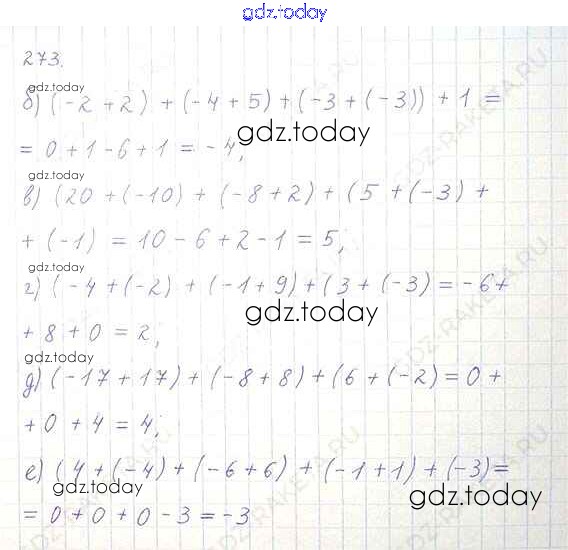 gdz.today
273.
gdz.today
б) (-2 + 2) + (-4 + 5) + (-3 + (-3)) + 1 =
gdz.today
= 0 + 1 - 6 + 1 = -4;
gdz.today
в) (20 + (-10) + (-8 + 2) + (5 + (-3) +
+ (-1) = 10 - 6 + 2 - 1 = 5;
gdz.today
г) (-4 + (-2) + (-1 + 9) + (3 + (-3) = -6 +
gdz.today
+ 8 + 0 = 2;
gdz.today
д) (-17 + 17) + (-8 + 8) + (6 + (-2) = 0 +
+ 0 + 4 = 4;
е) (4 + (-4) + (-6 + 6) + (-1 + 1) + (-3) =
gdz.today
gdz.today
= 0 + 0 + 0 - 3 = -3
GDZ-RAKETA.RU
GDZ-RAKETA.RU
GDZ-RAKETA.RU